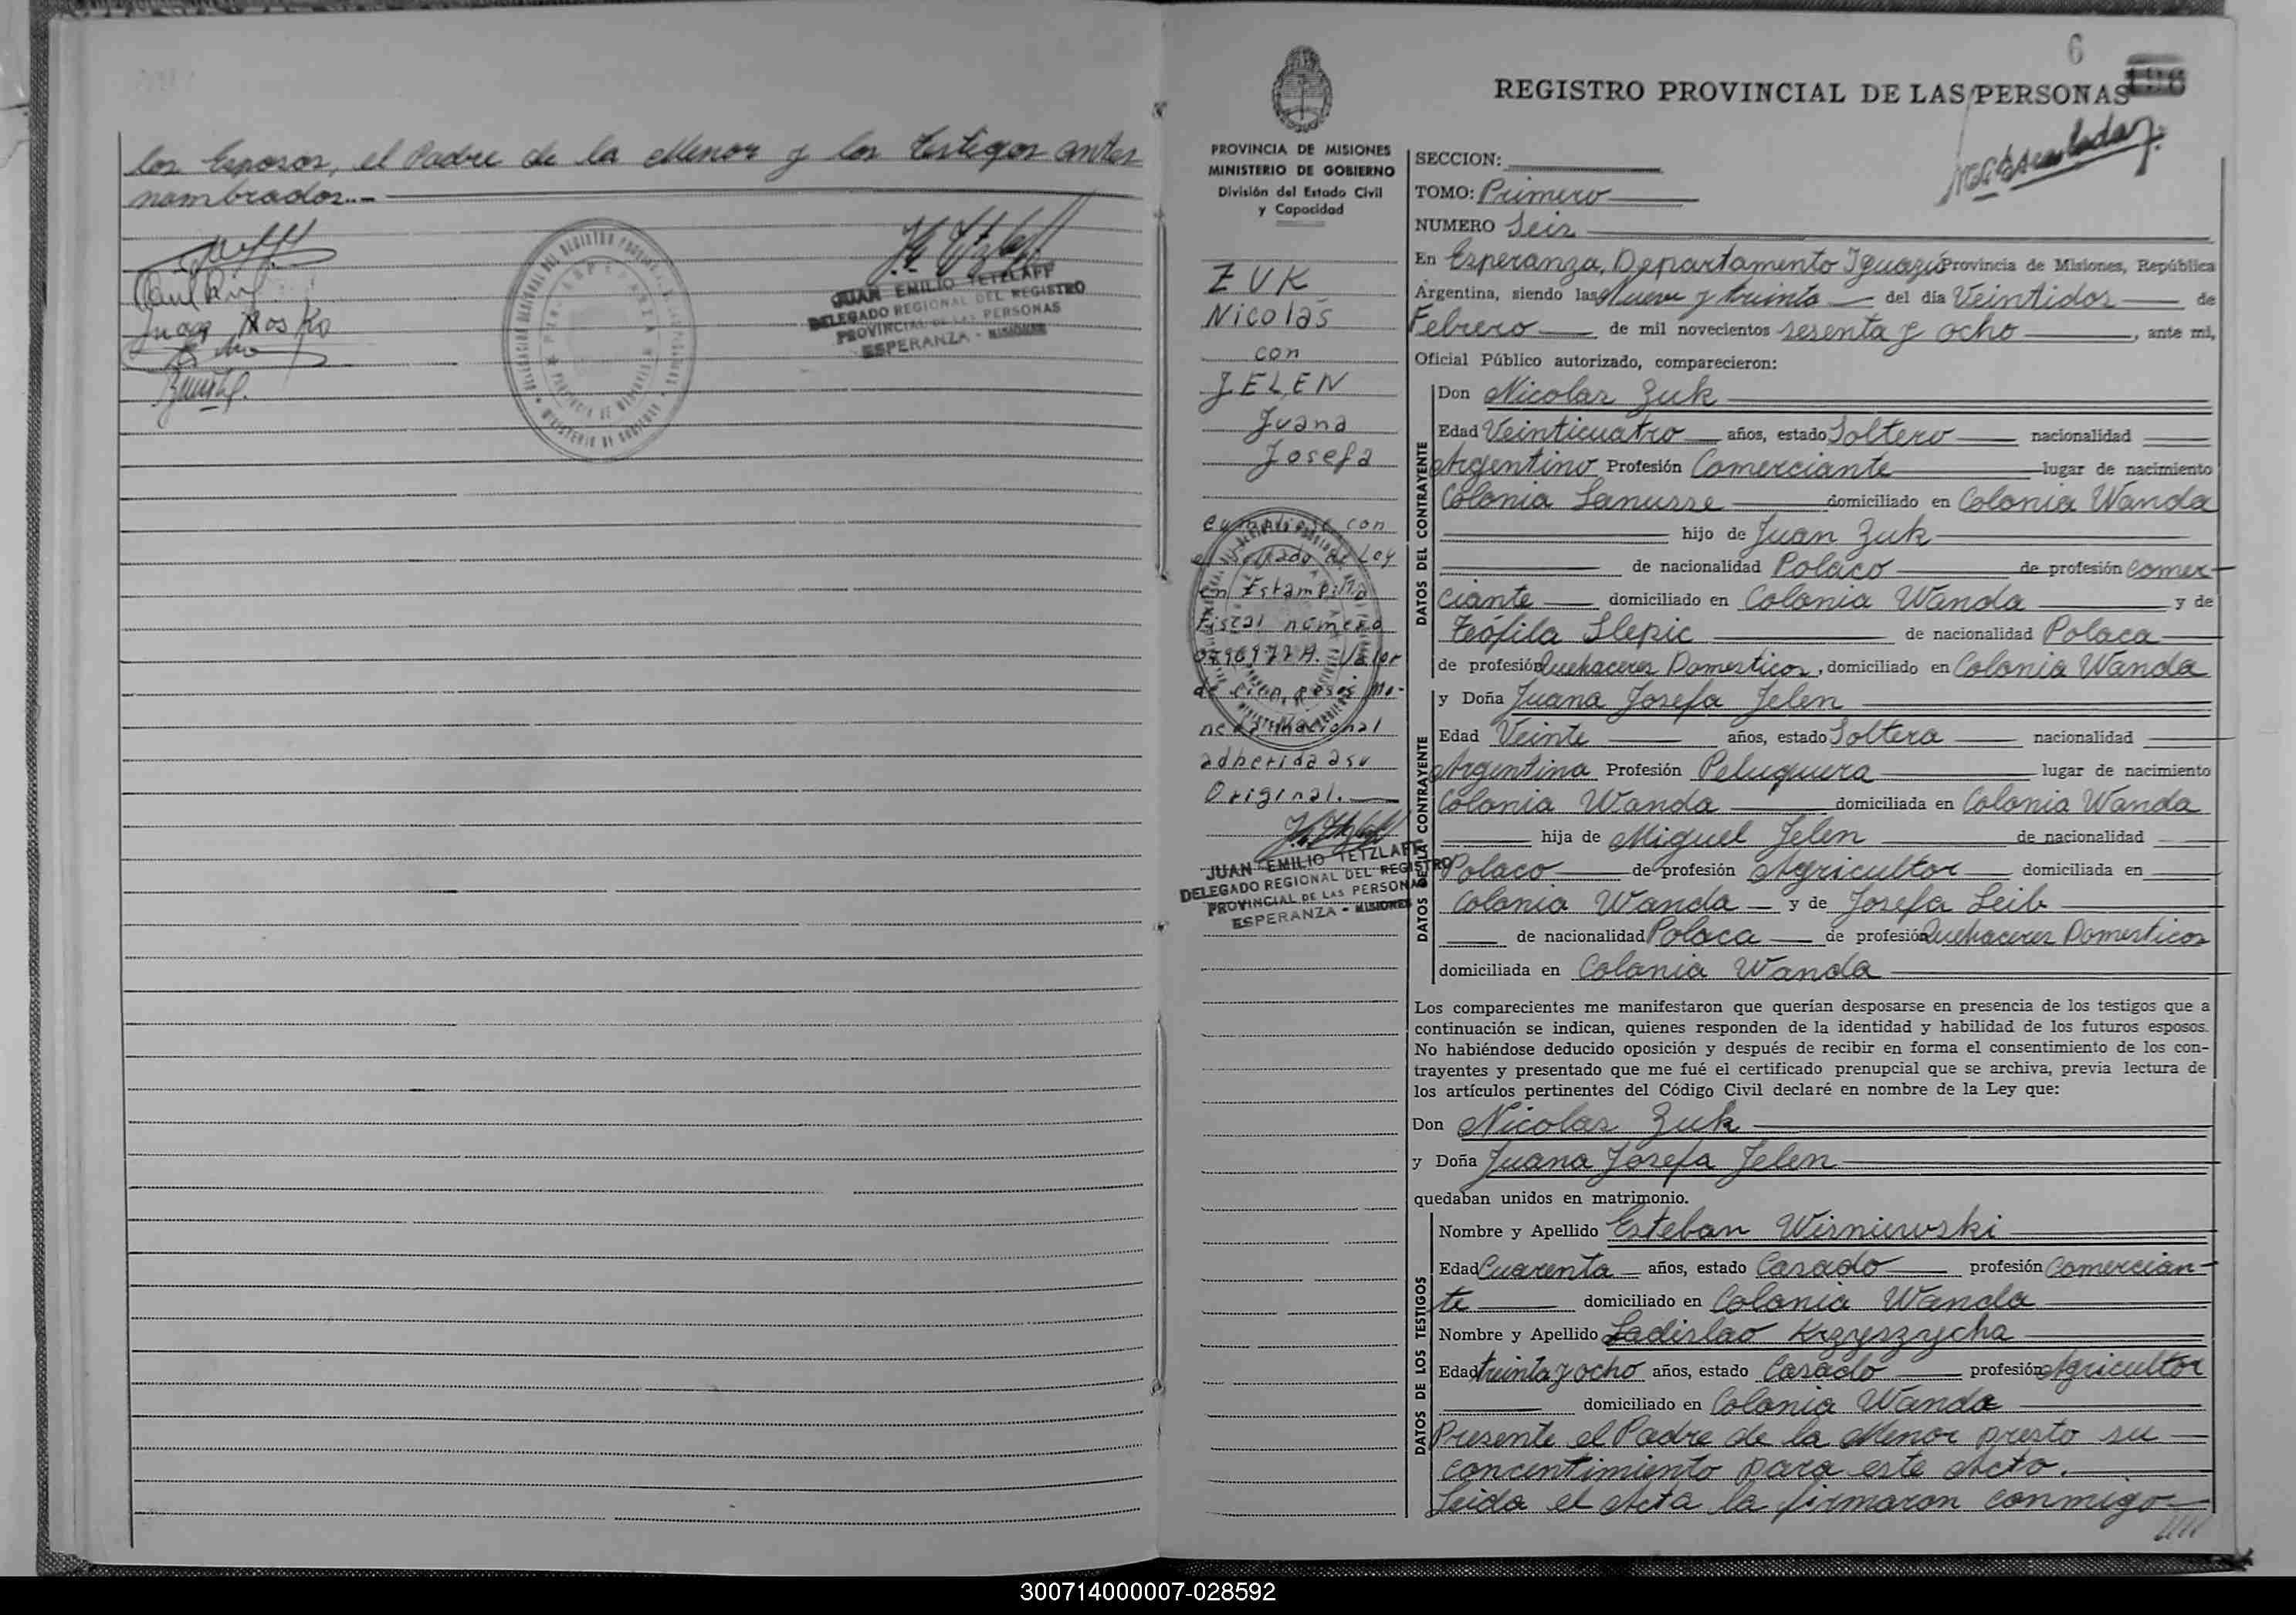 los Esposos, el Padre de la Menor y los Testigos antes
nombrados..-
JUAN EMILIO TETZLAFF
DELEGADO REGIONAL DEL REGISTRO
PROVINCIAL DE LAS PERSONAS
ESPERANZA - MISIONES
6
REGISTRO PROVINCIAL DE LAS PERSONAS
PROVINCIA DE MISIONES
MINISTERIO DE GOBIERNO
División del Estado Civil
y Capacidad
ZUK
Nicolás
con
JELEN
Juana
Josefa
cumpliose con
el sellado de Ley
en Estampilla
Fiscal número
Valor
de cien pesos Mo-
neda nacional
adherida a su
Original.
JUAN EMILIO TETZLAFF
DELEGADO REGIONAL DEL REGISTRO
PROVINCIAL DE LAS PERSONAS
ESPERANZA - MISIONES
SECCION:
TOMO: Primero
NUMERO Seis
En Esperanza, Departamento Iguazú Provincia de Misiones, República
Argentina, siendo las Nueve y treinta del día Veintidos de
Febrero de mil novecientos sesenta y ocho, ante mi,
Oficial Público autorizado, comparecieron:
DATOS DEL CONTRAYENTE
Don Nicolas Zuk
Edad Veinticuatro años, estado Soltero nacionalidad
Argentino Profesión Comerciante lugar de nacimiento
Colonia Lanusse domiciliado en Colonia Wanda
hijo de Juan Zuk
de nacionalidad Polaco de profesión Comer-
ciante domiciliado en Colonia Wanda y de
Teófila Slepic de nacionalidad Polaca
de profesión Quehaceres Domesticos, domiciliado en Colonia Wanda
DATOS DE LA CONTRAYENTE
y Doña Juana Josefa Jelen
Edad Veinte años, estado Soltera nacionalidad
Argentina Profesión Peluquera lugar de nacimiento
Colonia Wanda domiciliada en Colonia Wanda
hija de Miguel Jelen de nacionalidad
Polaco de profesión Agricultor domiciliada en
Colonia Wanda y de Josefa Leib
de nacionalidad Polaca de profesión Quehaceres Domesticos
domiciliada en Colonia Wanda
Los comparecientes me manifestaron que querían desposarse en presencia de los testigos que a
continuación se indican, quienes responden de la identidad y habilidad de los futuros esposos.
No habiéndose deducido oposición y después de recibir en forma el consentimiento de los con-
trayentes y presentado que me fué el certificado prenupcial que se archiva, previa lectura de
los artículos pertinentes del Código Civil declaré en nombre de la Ley que:
Don Nicolas Zuk
y Doña Juana Josefa Jelen
quedaban unidos en matrimonio.
DATOS DE LOS TESTIGOS
Nombre y Apellido Esteban Wisniewski
Edad Cuarenta años, estado Casado profesión Comercian-
te domiciliado en Colonia Wanda
Nombre y Apellido Ladislao Krzyszycha
Edad treinta y ocho años, estado Casado profesión Agricultor
domiciliado en Colonia Wanda
Presente el Padre de la Menor presto su
concentimiento para este Acto.
Leida el Acta la firmaron conmigo
300714000007-028592